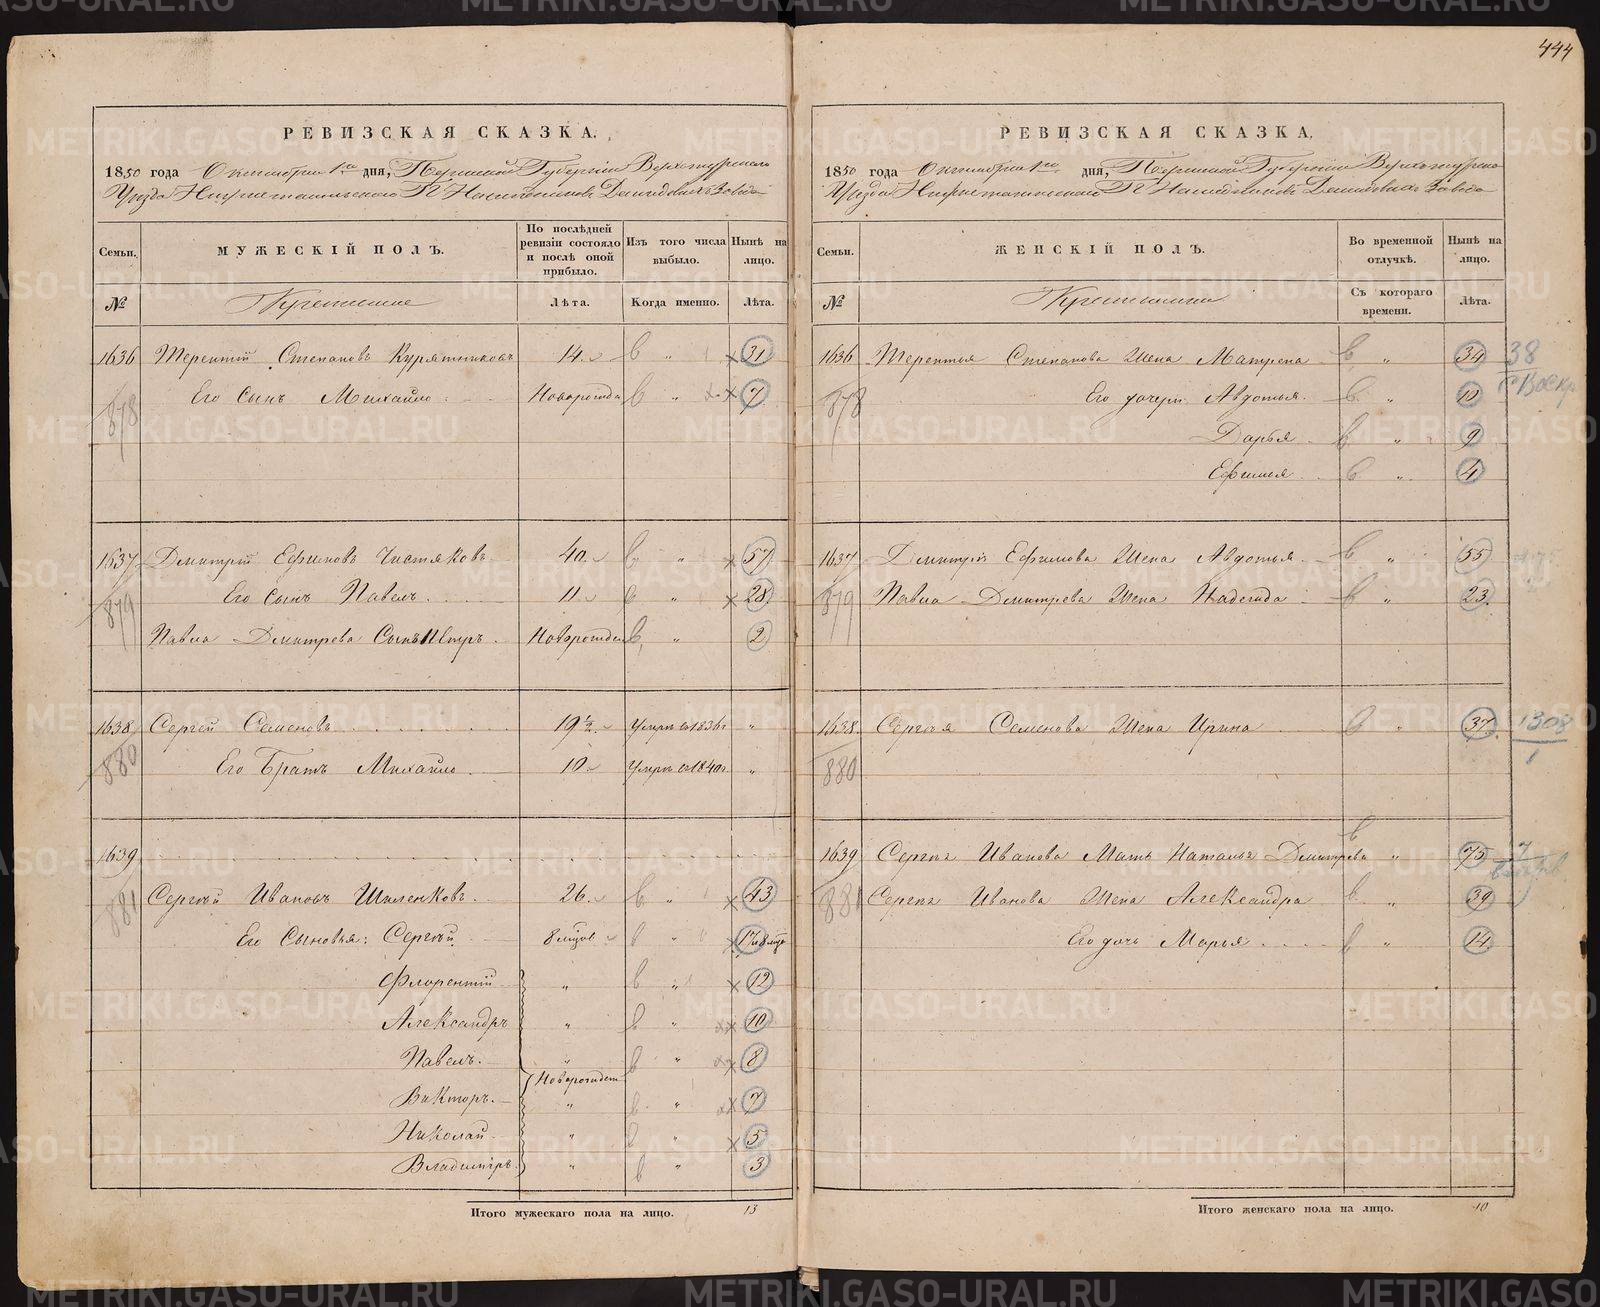 444
РЕВИЗСКАЯ СКАЗКА.
1850 года Октября 1го дня, Пермской Губернии Верхотурскаго
Уѣзда Нижнетагильскаго Наслѣдниковъ Демидовыхъ Завода
Семьи.
МУЖЕСКІЙ ПОЛЪ.
По послѣдней ревизіи состояло и послѣ оной прибыло.
Изъ того числа выбыло.
Нынѣ на лицо.
№
Лѣта.
Когда именно.
Лѣта.
1636 Терентій Степановъ Курятниковъ 14. в " 31
878 Его Сынъ Михайло Новорожден в " 7
1637 Дмитрій Ефимовъ Чистяковъ 40. в " 57
879 Его Сынъ Павелъ 11 в " 28
Павла Дмитрева Сынъ Петръ Новорожден в " 2
1638 Сергей Семеновъ 19 ½ Умръ въ 1836г "
880 Его Братъ Михайло 10 Умръ въ 1840г "
1639
881 Сергѣй Ивановъ Шиленковъ 26. в " 43
Его Сыновья: Сергѣй 8 мцов в " 17 и 8 мцо
Флорентій " в " 12
Александръ " в " 10
Павелъ. " в " 8
Новорожден
Викторъ. " в " 7
Николай " в " 5
Владиміръ. " в " 3
Итого мужескаго пола на лицо. 13
РЕВИЗСКАЯ СКАЗКА.
1850 года Октября 1го дня, Пермской Губерніи Верхотурскаго
Уѣзда Нижнетагильскаго Наслѣдниковъ Демидовыхъ Завода
Семьи.
ЖЕНСКІЙ ПОЛЪ.
Во временной отлучкѣ.
Нынѣ на лицо.
№
Съ котораго времени.
Лѣта.
1636 Терентья Степанова Жена Матрена в " 34 38
878 Его дочери Авдотья в " 10
Дарья в " 9
Ефимья в " 4
1637 Дмитрія Ефимова Жена Авдотья в " 55
879 Павла Дмитрева Жена Надежда в " 23
1638 Сергея Семенова Жена Ирина " 37 1308
1
880
1639 Сергѣя Иванова Мать Наталья Дмитрева в " 75 7
881 Сергѣя Иванова Жена Александра в " 39
Его дочь Марья в " 14
Итого женскаго пола на лицо. 10
METRIKI.GASO-URAL.RU